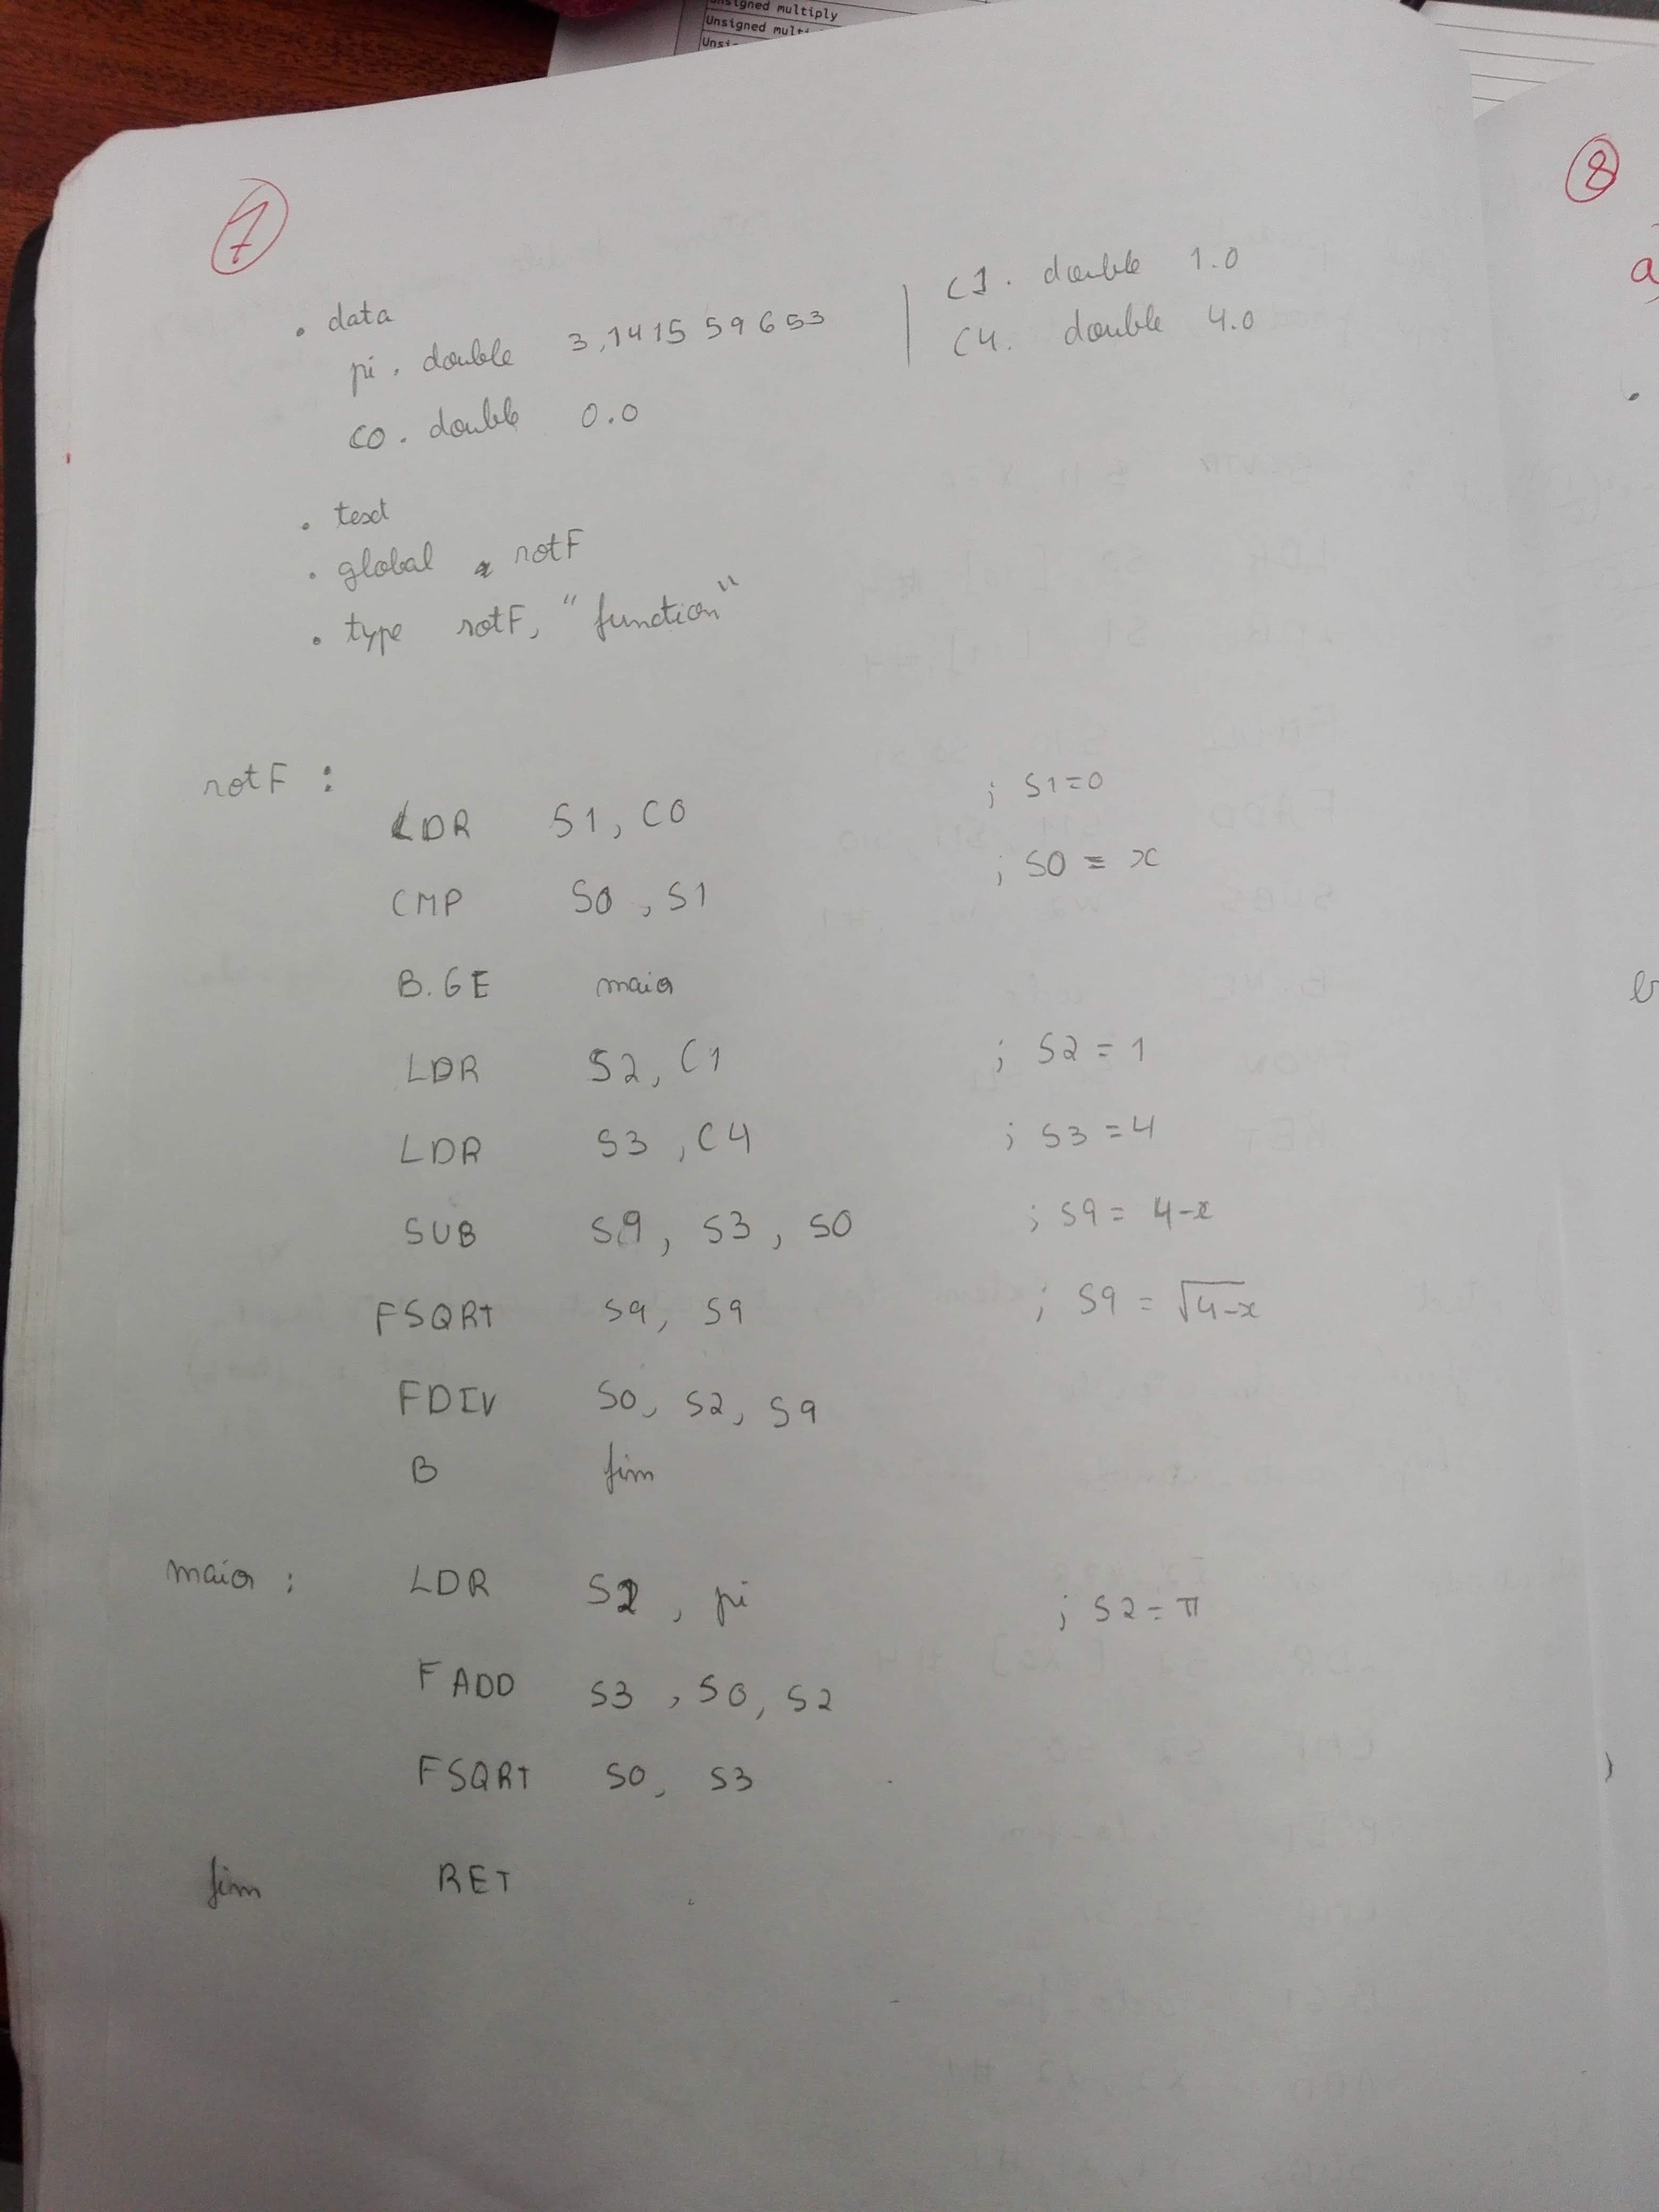 Unsigned multiply
Unsigned
7
8
. data
pi . double 3,141559653
C1. double 1.0
C4. double 4.0
C0. double 0.0
a
. text
. global rotF
. type rotF, "function"
rotF :
LDR S1, C0 ; S1=0
CMP S0, S1 ; S0 = x
B.GE maior
LDR S2, C1 ; S2 = 1
LDR S3, C4 ; S3 = 4
SUB S9, S3, S0 ; S9 = 4-x
FSQRT S9, S9 ; S9 = √4-x
FDIV S0, S2, S9
B fim
maior : LDR S2, pi ; S2 = π
FADD S3, S0, S2
FSQRT S0, S3
fim RET